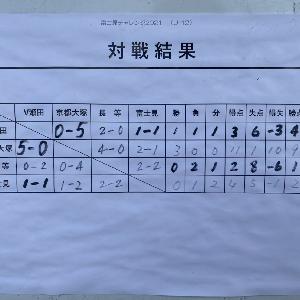 富士見チャレンジ2021 (U-12)
対戦結果
V瀬田 京都大塚 長等 富士見 勝 負 分 得点 失点 得失
田 0-5 2-0 1-1 1 1 1 3 6 -3 4
大塚 5-0 4-0 2-1 3 0 0 11 1 10 9
等 0-2 0-4 2-2 0 2 1 2 8 -6 1
士見 1-1 1-2 2-2 0 1 2 4 5 -1 2